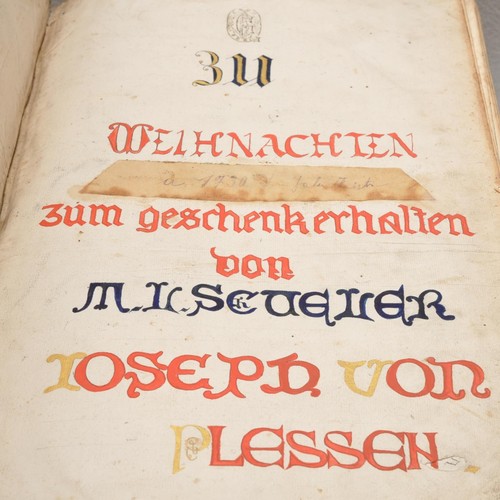 Zu
WEIHNACHTEN
zum geschenk erhalten
von
M.L. SCKUELER
IOSEPH VON
PLESSEN